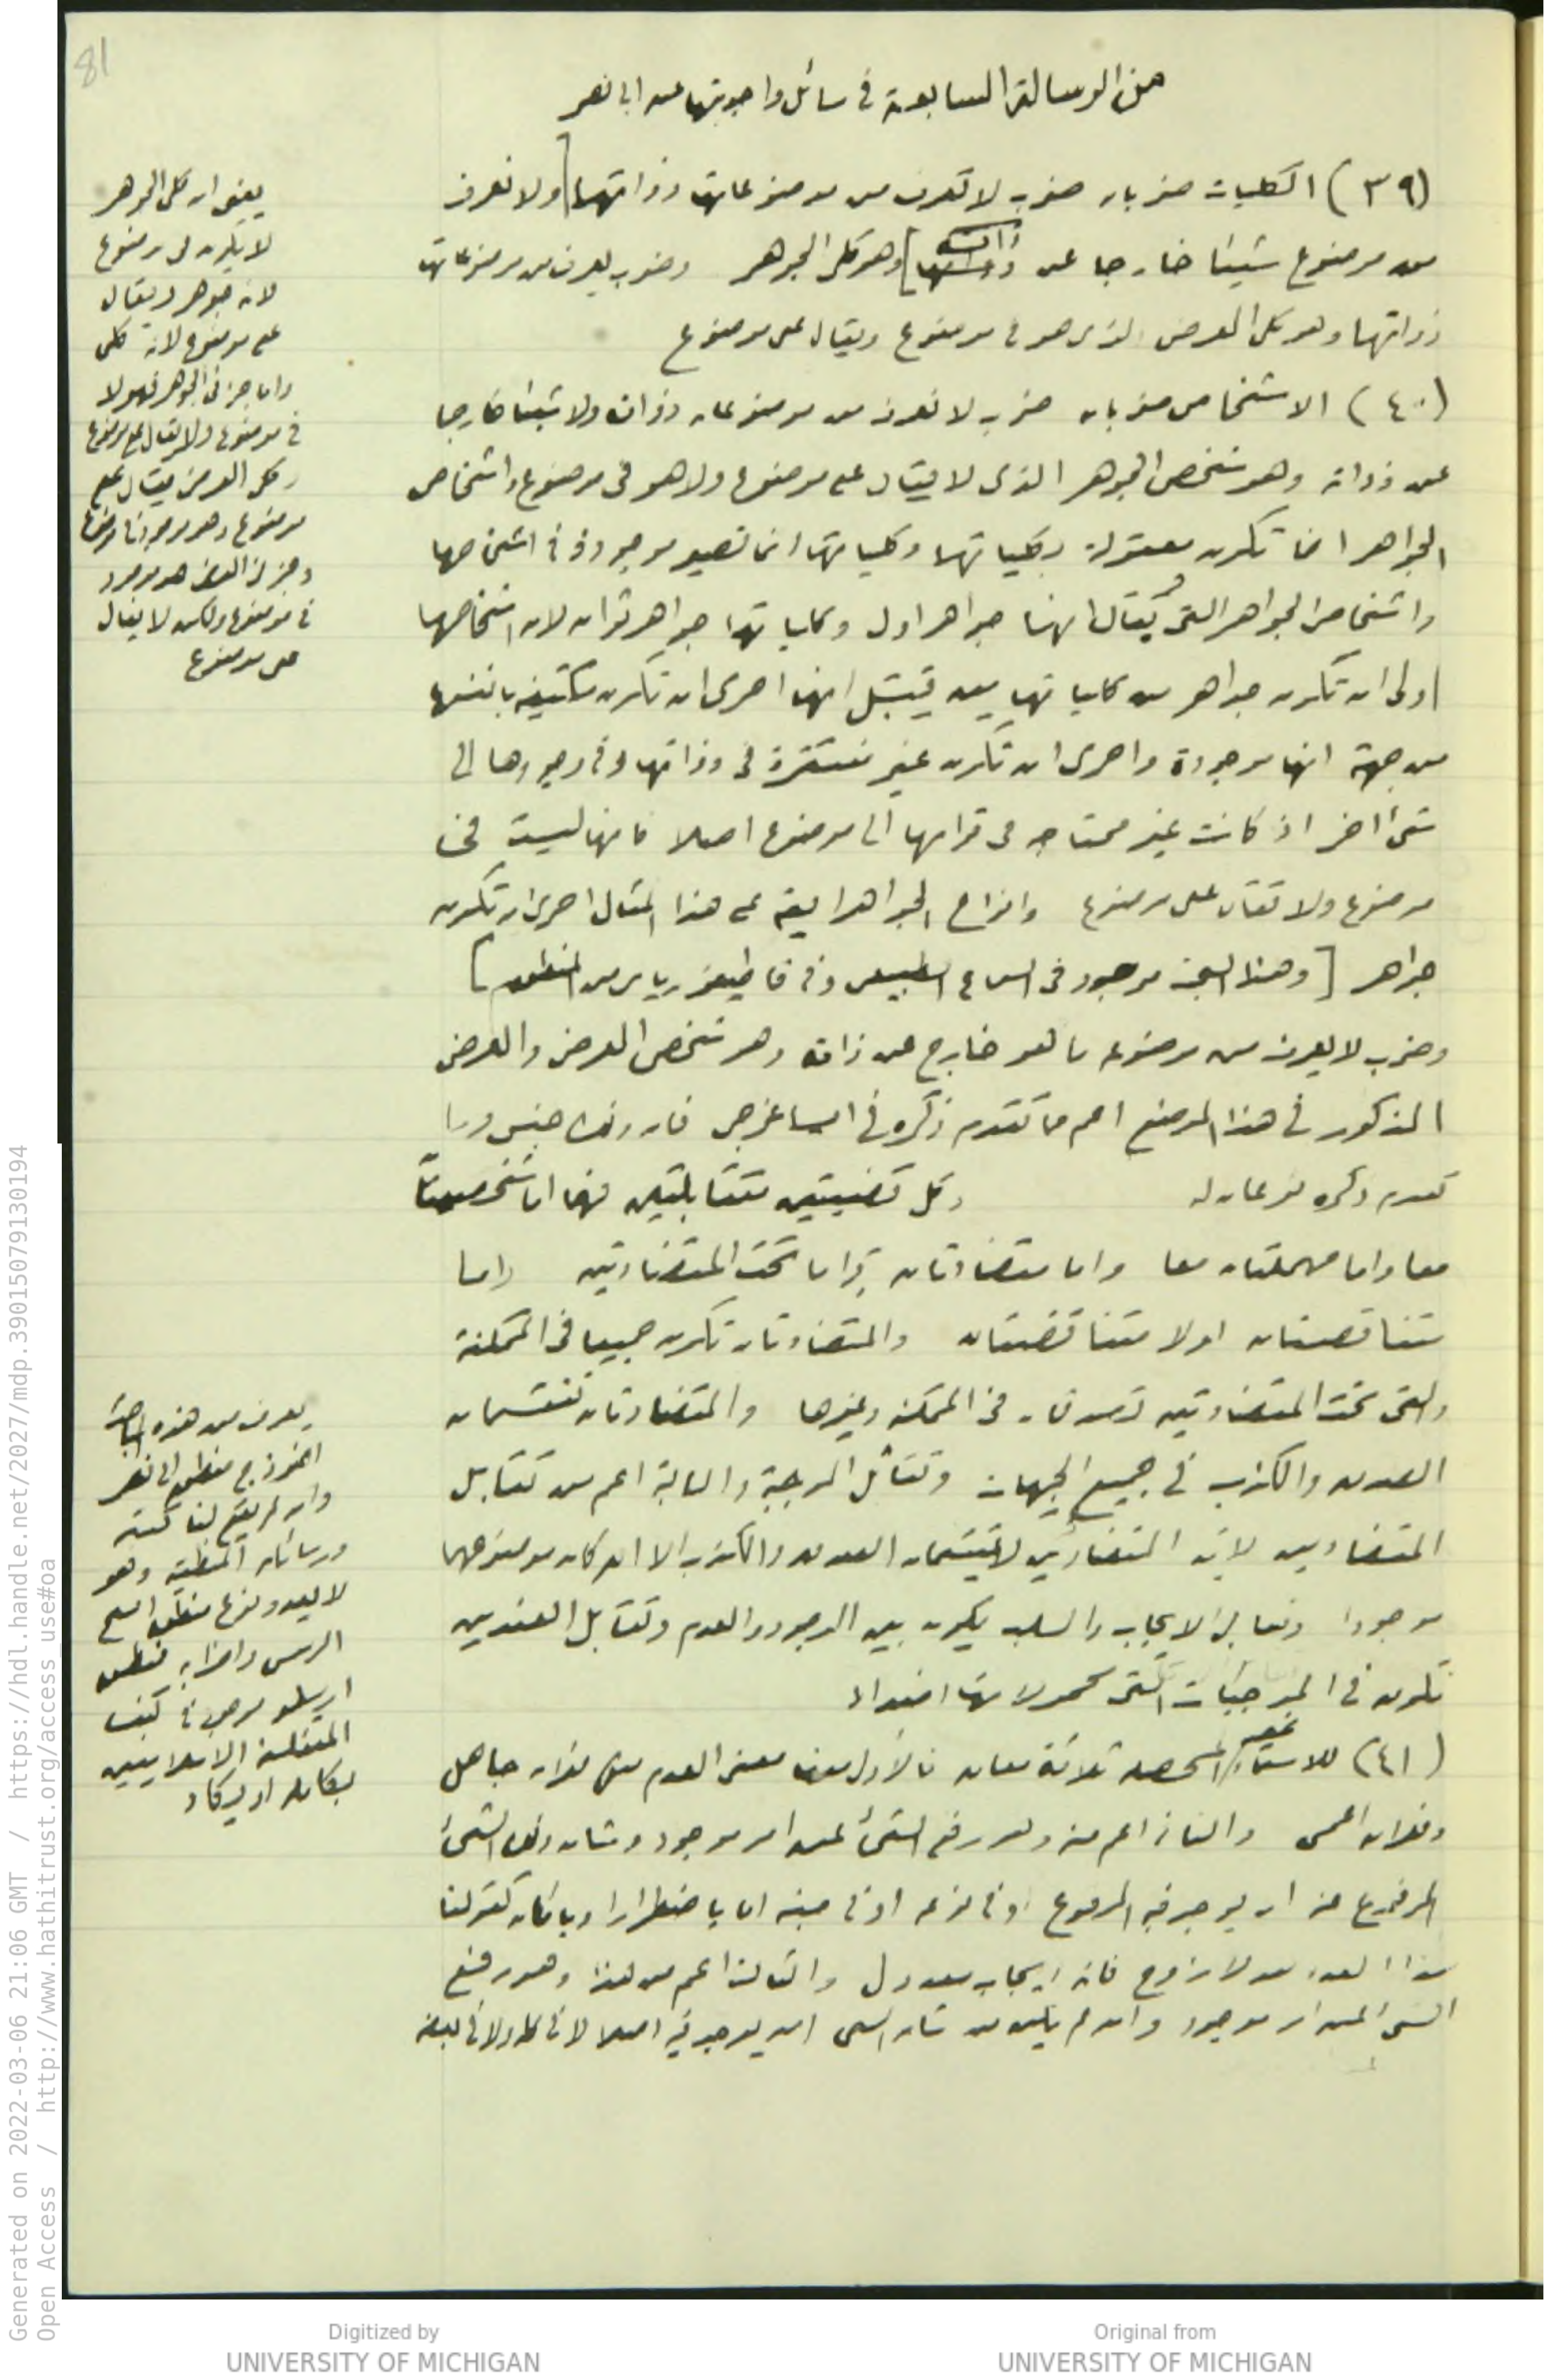 81
من الرسالة السابعة في مسائل واجوبتها عن ابي نصر
(٣٩) الكليات ضربان ضرب لا تعرف من موضوعاتها ذواتها ولا تعرف
من موضوع شيئا خارجا عن ذاته] وهو كلى الجوهر وضرب يعرف من موضوعاتها
ذواتها وهو كلى العرض الذى هو في موضوع ويقال على موضوع
(٤٠) الاشخاص ضربان ضرب لا تعرف من موضوعات ذواته ولا شيئا خارجا
عن ذواته وهو شخص الجوهر الذى لا يقال على موضوع ولا هو فى موضوع واشخاص
الجواهر انما تكون معقولة بكلياتها وكلياتها انما تصير موجودة في اشخاصها
واشخاص الجواهر التى يُقال انها جواهر اول وكلياتها جواهر ثوان لان اشخاصها
اولى ان تكون جواهر من كلياتها من قبل انها احرى ان تكون مكتفية بانفسها
من جهة انها موجودة واحرى ان تكون غير مفتقرة فى ذواتها وفى وجودها الى
شئ اخر اذ كانت غير محتاجه فى قوامها الى موضوع اصلا فانها ليست فى
موضوع ولا تقال على موضوع وانواع الجواهر ايضه على هذا المثال احرى ان تكون
جواهر [وهذا البحث موجود فى السماع الطبيعى وفى قاطيغورياس من المنطق]
وضرب لا يعرف من موضوعه ما هو خارج عن ذاته وهو شخص العرض والعرض
المذكور في هذا الموضع اعم مما تقدم ذكره في ايساغوجى فان ذلك جنس وما
تقدم ذكره نوعان له وكل قضيتين متقابلتين فهما اما شخصيتان
معا واما مهملتان معا واما متضادتان واما تحت المتضادتين واما
متناقضتان او لا متناقضتان والمتضادتان تكون جميعا فى الممكنة
والتى تحت المتضادتين تصدقان فى الممكنة وغيرها والمتضادتان تقتسمان
الصدق والكذب في جميع الجهات وتقابل الموجبة والسالبة اعم من تقابل
المتضادين لان المتضادين لا يقتسمان الصدق والكذب الا ان كان موضوعهما
موجودا وتقابل الايجاب والسلب يكون بين الوجود والعدم وتقابل الضدين
تكون في الموجبات التى محمولاتها اضداد
(٤١) للاسم غير المحصل ثلاثة معان فالاول منها معنى العدم مثل فلان جاهل
وفلان اعمى والثاني اعم منه وهو رفع الشئ عن امر موجود وشان ذلك الشئ
المرفوع عنه ان يوجد فيه المرفوع او فى نوعه او فى جنسه اما باضطرار او بامكان كقولنا
هذا العدد لا زوج فانه ايجاب معدول والثالث اعم من هذا وهو رفع
الشئ عن امر موجود وان لم يكن من شان الشئ ان يوجد فيه اصلا لا فى كله ولا فى بعضه
يعنى ان كلى الجوهر
لا يكون فى موضوع
لانه جوهر ويقال
على موضوع لانه كلى
واما جزئى الجوهر فهو لا
في موضوع ولا يقال على موضوع
وكلى العرض يقال على
موضوع وهو موجود في موضوع
وجزئى العرض هو موجود
في موضوع ولكن لا يقال
على موضوع
يعرف من هذه
انموذج منطق ابى نصر
وان لم يقع لنا كتبه
ورسائله المنطقية وهو
لا يعدو نوع منطق الشيخ
الرئيس واضرابه فمنطق
ارسطو موجود في كتب
المتفلسفة الاسلاميين
بكامله او يكاد
Generated on 2022-03-06 21:06 GMT / https://hdl.handle.net/2027/mdp.39015079130194
Open Access / http://www.hathitrust.org/access_use#oa
Digitized by
UNIVERSITY OF MICHIGAN
Original from
UNIVERSITY OF MICHIGAN